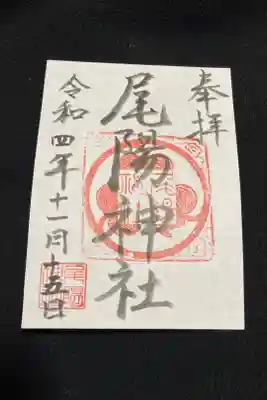 奉拝
尾陽神社
令和四年十一月十五日